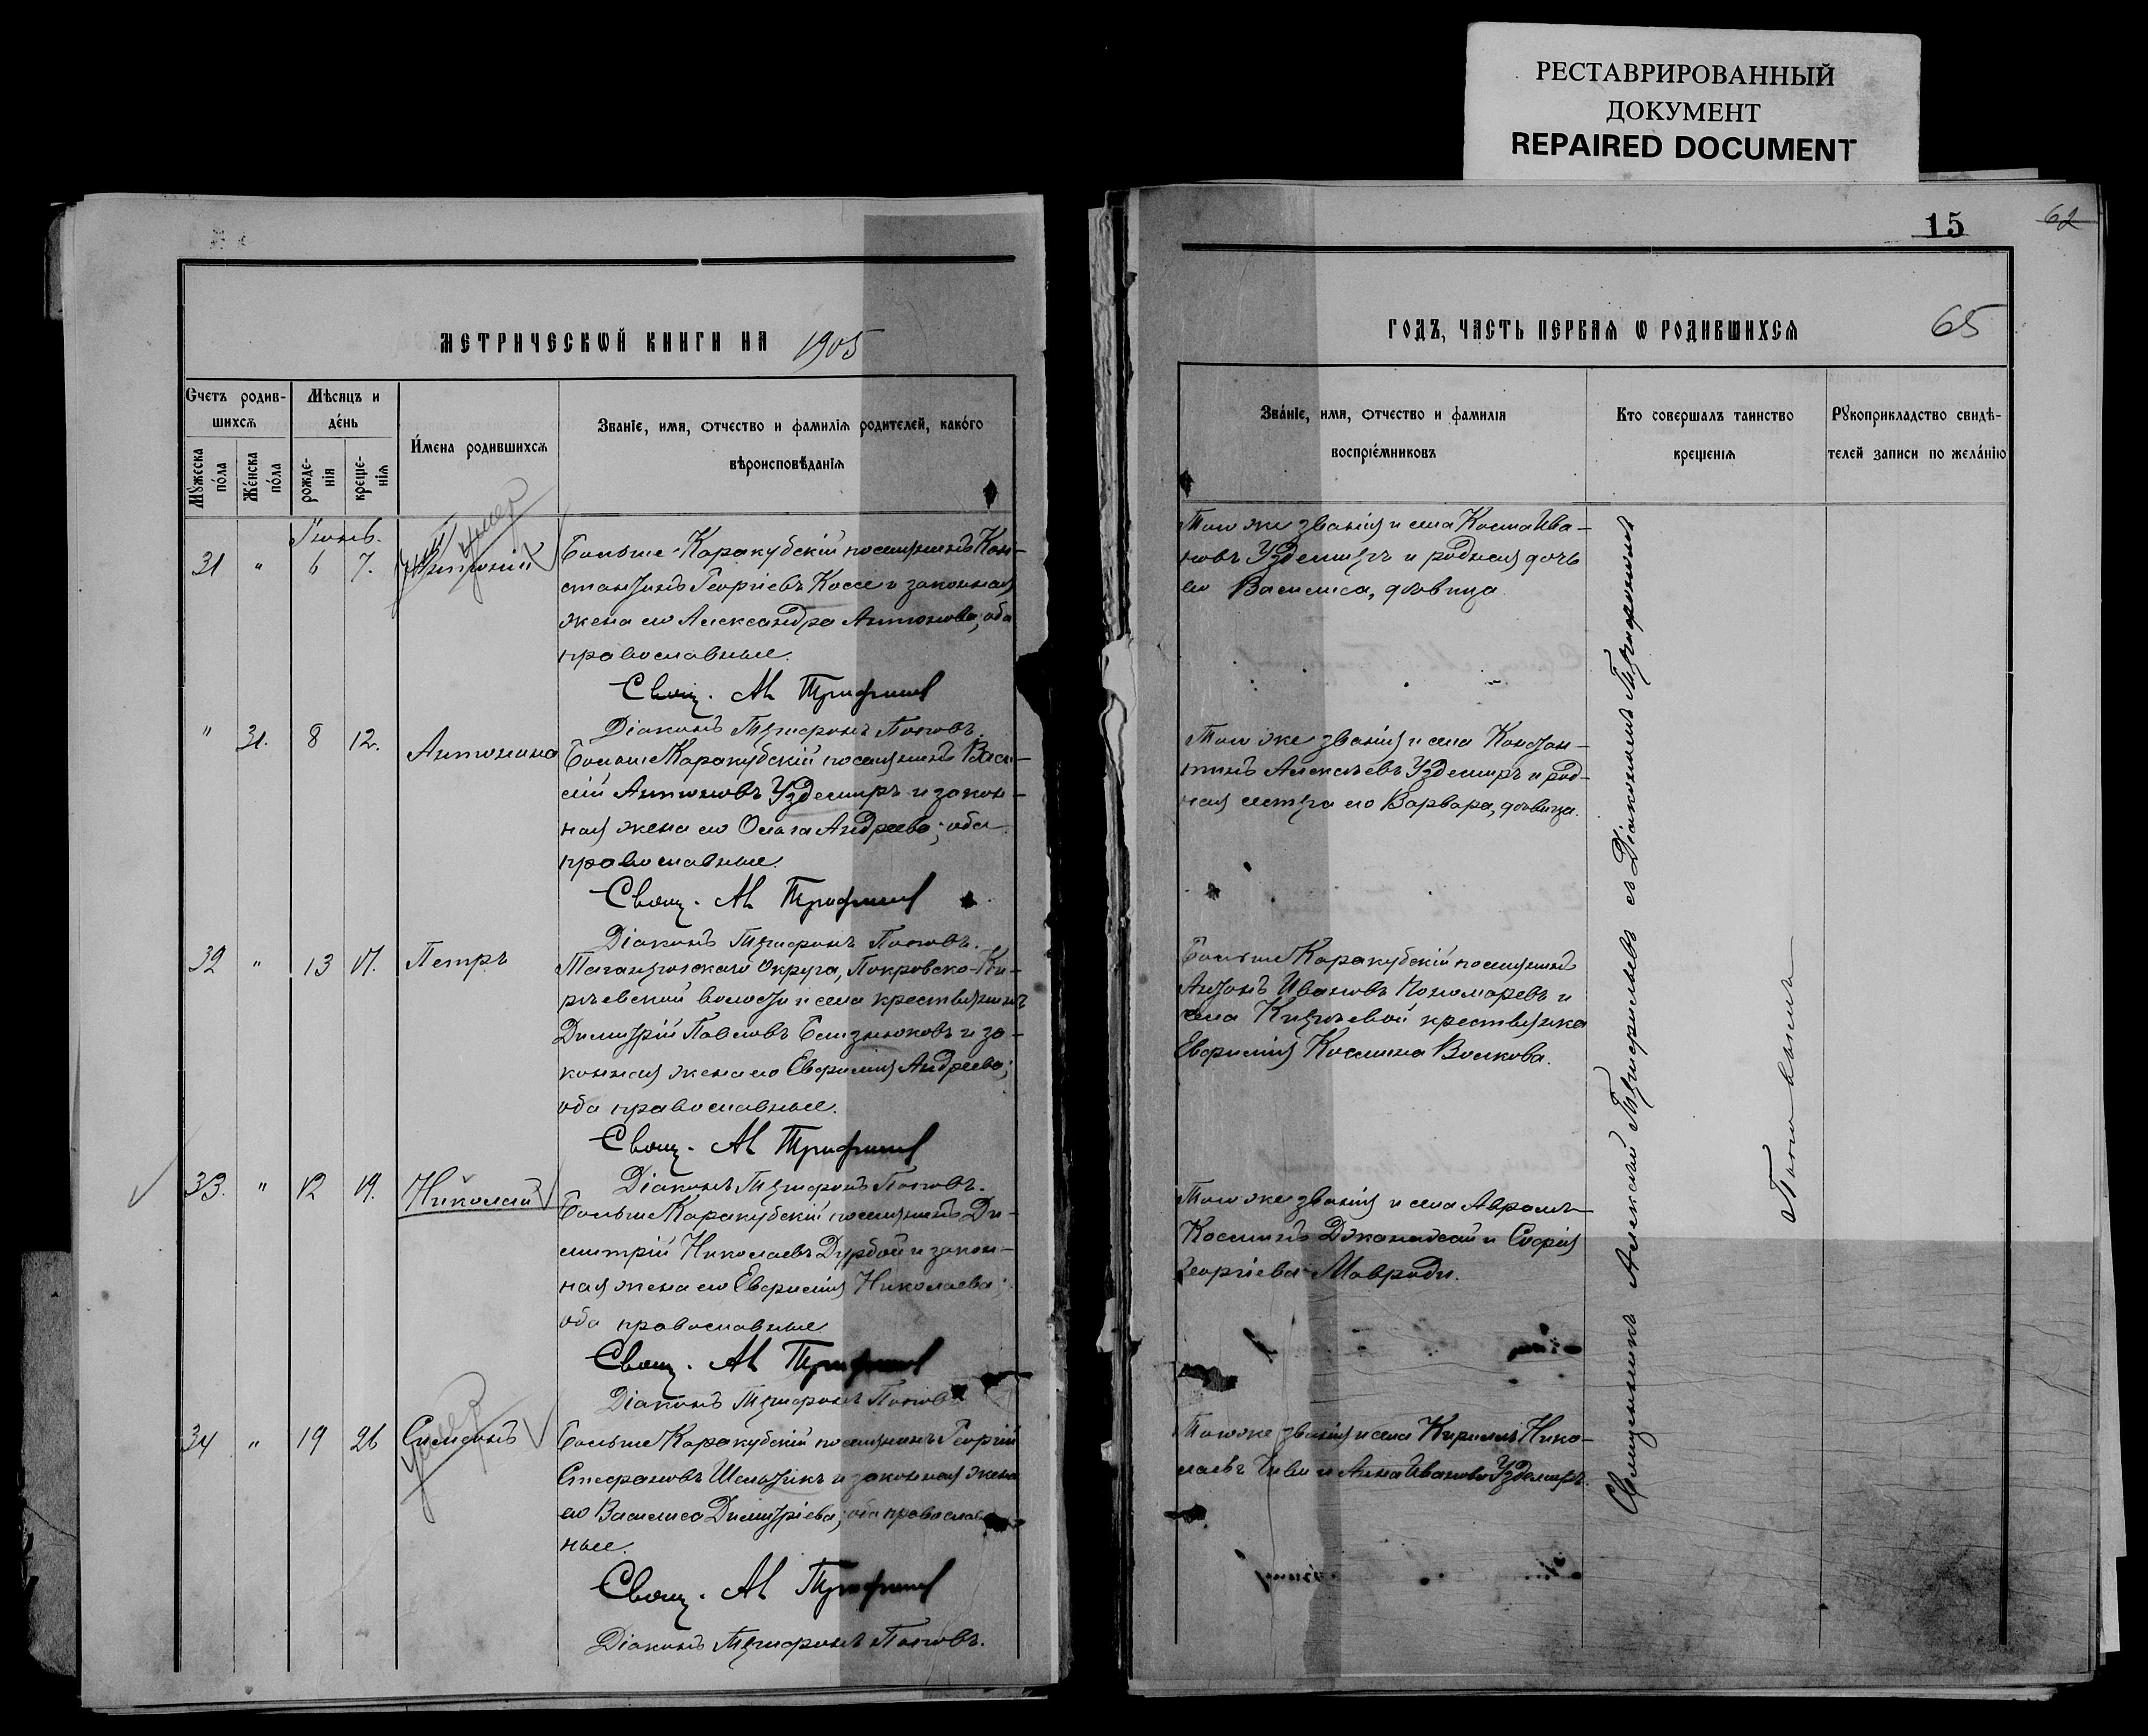 РЕСТАВРИРОВАННЫЙ
ДОКУМЕНТ
REPAIRED DOCUMENT
МЕТРИЧЕСКѠЙ КНИГИ НА 1905
Счетъ родив-
шихсѧ
Мꙋжеска
по́ла
Же́нска
по́ла
Мѣсяцъ и
де́нь
рожде-
нія
креще-
нія
И́мена родившихсѧ
Званіе, имя, ѻтчество и фамилія родителей, како́го
вѣроисповѣданія
Іюнь.
31 " 6 7. Антоній
умер
Больше-Каракубскій поселянинъ Кон-
стантинъ Георгіевъ Коссе и законная
жена его Александра Антонова; оба
православные.
Свящ. Ал Трифильев
Діаконъ Трифонъ Поповъ.
" 31. 8 12. Антонина
Больше Каракубскій поселянинъ Васи-
лій Антоновъ Уздемиръ и закон-
ная жена его Ольга Андреева; оба
православные.
Свящ. Ал Трифильев
Діаконъ Трифонъ Поповъ.
32 " 13 17. Петръ
Таганрогскаго Округа, Покровско-Ки-
рѣевской волости и села крестьянинъ
Димитрій Павловъ Близнюковъ и за-
конная жена его Евфимія Андреева;
оба православные.
Свящ. Ал Трифильев
Діаконъ Трифонъ Поповъ.
33. " 12 19. Николай
Больше Каракубскій поселянинъ Ди-
митрій Николаевъ Дурбой и закон-
ная жена его Евфимія Николаева;
оба православные.
Свящ. Ал Трифильев
Діаконъ Трифонъ Поповъ
34 " 19 26 Симеонъ
умер
Больше Каракубскій поселянинъ Георгій
Стефановъ Шельтикъ и законная жена
его Василиса Димитріева; оба православ-
ные.
Свящ. Ал Трифильев
Діаконъ Трифонъ Поповъ.
15
62
ГОДЪ, ЧАСТЬ ПЕРВАЯ Ѡ РОДИВШИХСЯ
65
Зва́ніе, имя, ѻтчество и фамилія
воспріе́мниковъ
Кто совершалъ таинство
крещенія
Рꙋкоприкладство свидѣ-
телей записи по жела́нію
Того же званія и села Косма Ива-
новъ Уздемиръ и родная дочь
его Василиса, дѣвица
Того же званія и села Констан-
тинъ Алексѣевъ Уздемиръ и род-
ная сестра его Варвара, дѣвица.
Больше Каракубскій поселянинъ
Антонъ Ивановъ Пономаревъ и
села Кирѣевой крестьянка
Евфимія Космина Волкова.
Того же званія и села Авраамъ
Косминъ Джанадсай и Софія
Георгіева Мавроди.
Того же званія и села Кириллъ Нико-
лаевъ Чиви и Анна Иванова Уздемиръ.
Священникъ Алексѣй Трифильевъ съ Діакономъ Трифономъ
Поповымъ